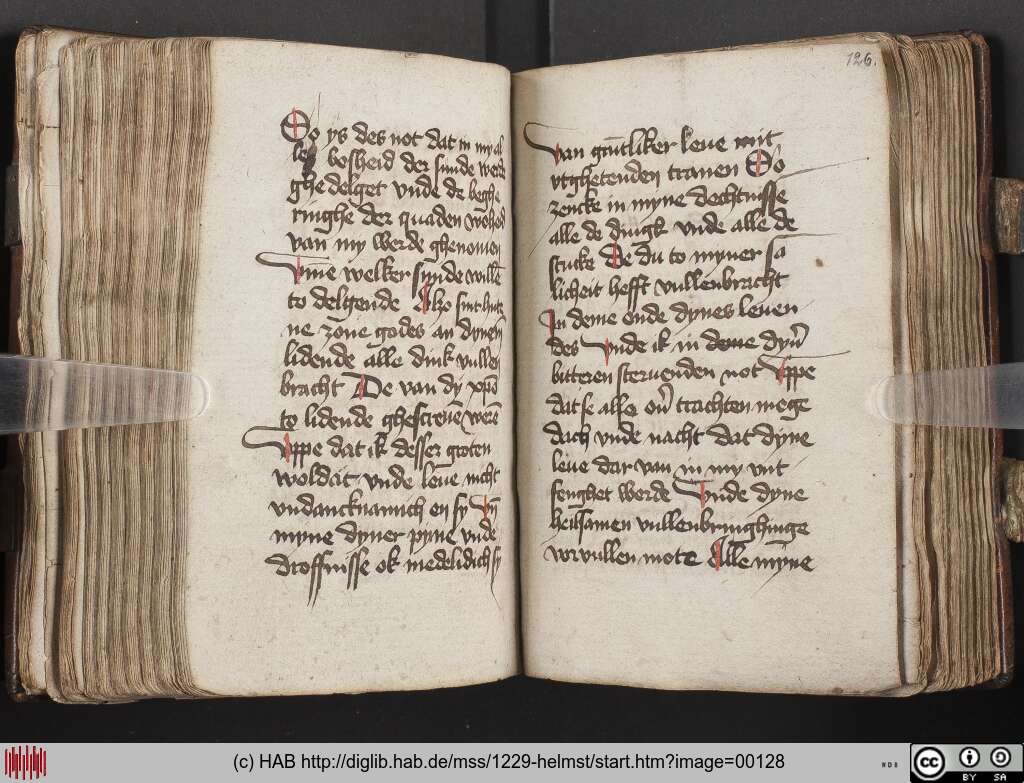 So ys des not dat in my al
ler bosheid der sunde werde
ghedelget vnde de beghe
ringhe der quaden
van my werde ghenomen
Vme welker sunde wille
to delgende Also sint hute
ne zone godes an dynem
lidende alle dink vullen
bracht De van dy xpo
to lidende ghescreuē werē
Vppe dat ik desser groten
woldat vnde leue nicht
vndancknamich en sy Vn̄
myne dyner pyne vnde
droffnisse ok medelidich sy
126.
van grūtliker leue mit
vtghetenden tranen So
zencke in myne dechtnisse
alle de dingk vnde alle de
stucke De du to myner sa
licheit hefft vullenbracht
In deme ende dynes leuen
des Vnde ik in deme dyn̄
bitteren steruenden not Vppe
dat se alse on̄ trachten moge
dach vnde nacht dat dyne
leue dar van in my vnt
fenghet werde Vnde dyne
heilsamen vullenbringhinge
vorvullen mote Alle myne
(c) HAB http://diglib.hab.de/mss/1229-helmst/start.htm?image=00128
WDB
cc BY SA